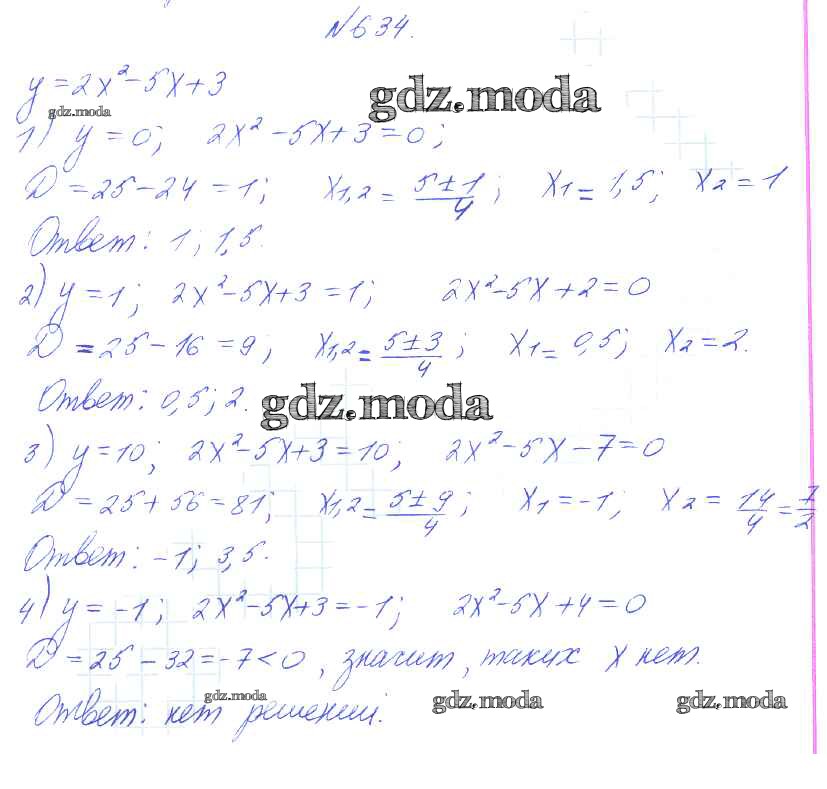 №634.
y=2x²-5x+3
gdz.moda
gdz.moda
1) y=0; 2x²-5x+3=0;
D=25-24=1; x₁,₂= (5±1)/4; x₁=1,5; x₂=1
Ответ: 1; 1,5.
2) y=1; 2x²-5x+3=1; 2x²-5x+2=0
D=25-16=9; x₁,₂= (5±3)/4; x₁=0,5; x₂=2.
Ответ: 0,5; 2.
gdz.moda
3) y=10; 2x²-5x+3=10; 2x²-5x-7=0
D=25+56=81; x₁,₂= (5±9)/4; x₁=-1; x₂= 14/4=7/2
Ответ: -1; 3,5.
4) y=-1; 2x²-5x+3=-1; 2x²-5x+4=0
D=25-32=-7<0, значит, таких x нет.
gdz.moda
gdz.moda
gdz.moda
Ответ: нет решений.